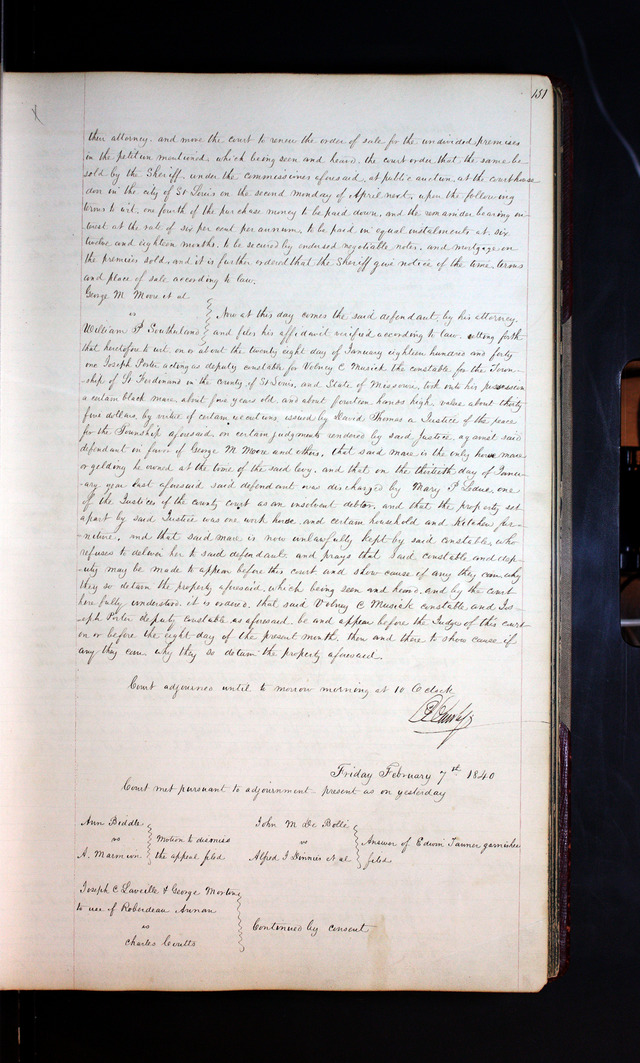 151
their attorney, and move the court to renew the order of sale for the undivided premises
in the petition mentioned, which being seen and heard, the court order that the same be
sold by the Sheriff, under the commissioners aforesaid, at public auction, at the courthouse
door in the city of St Louis on the second monday of April next, upon the following
terms to wit, one fourth of the purchase money to be paid down, and the remainder bearing in-
terest at the rate of six per cent per annum, to be paid in equal instalments at six
twelve and eighteen months, to be secured by endorsed negotiable notes, and mortgage on
the premises sold, and it is further ordered that the Sheriff give notice of the time, terms
and place of sale according to law.
George M. Moore et al
vs
William T Southerland
Now at this day comes the said defendant, by his attorney,
and files his affidavit verified according to law, setting forth
that heretofore to wit, on or about the twenty eight day of January eighteen hundred and forty
one Joseph Porter acting as deputy constable for Volney C Musick the constable for the Town-
-ship of St Ferdinand in the county of St Louis, and State of Missouri, took into his possession
a certain black mare, about five years old and about fourteen hands high, value about thirty
five dollars, by virtue of certain executions, issued by David Thomas a Justice of the peace
for the Township aforesaid, on certain judgments rendered by said Justice, against said
defendant in favor of George M Moore and others, that said mare is the only horse mare
or gelding he owned at the time of the said levy, and that on the thirtieth day of Janu-
-ary year last aforesaid said defendant was discharged by Mary P Leduc one
of the Justices of the county court as an insolvent debtor, and that the property set
apart by said Justice was one work horse, and certain household and Kitchen fur-
-niture, and that said mare is now unlawfully kept by said constable, who
refuses to deliver her to said defendant and prays that said constable and dep-
-uty may be made to appear before this court and show cause if any they can, why
they so detain the property aforesaid, which being seen and heard, and by the court
here fully understood it is ordered, that said Volney C Musick constable, and Jos-
-eph Porter deputy constable as aforesaid be and appear before the Judge of this court
on or before the eight day of the present month, then and there to show cause if
any they can why they so detain the property aforesaid.
Court adjourned until to morrow morning at 10 O clock
Friday February 7th 1840
Court met pursuant to adjournment present as on yesterday
Ann Biddle
vs
A. Marmion
Motion to dismiss
the appeal filed
John M De Bolle
vs
Alfred J Dinnies et al
Answer of Edwin Tanner garnishee
filed
Joseph C Laveille & George Morton
to use of Roberdeau Annan
vs
Charles Coutts
Continued by consent